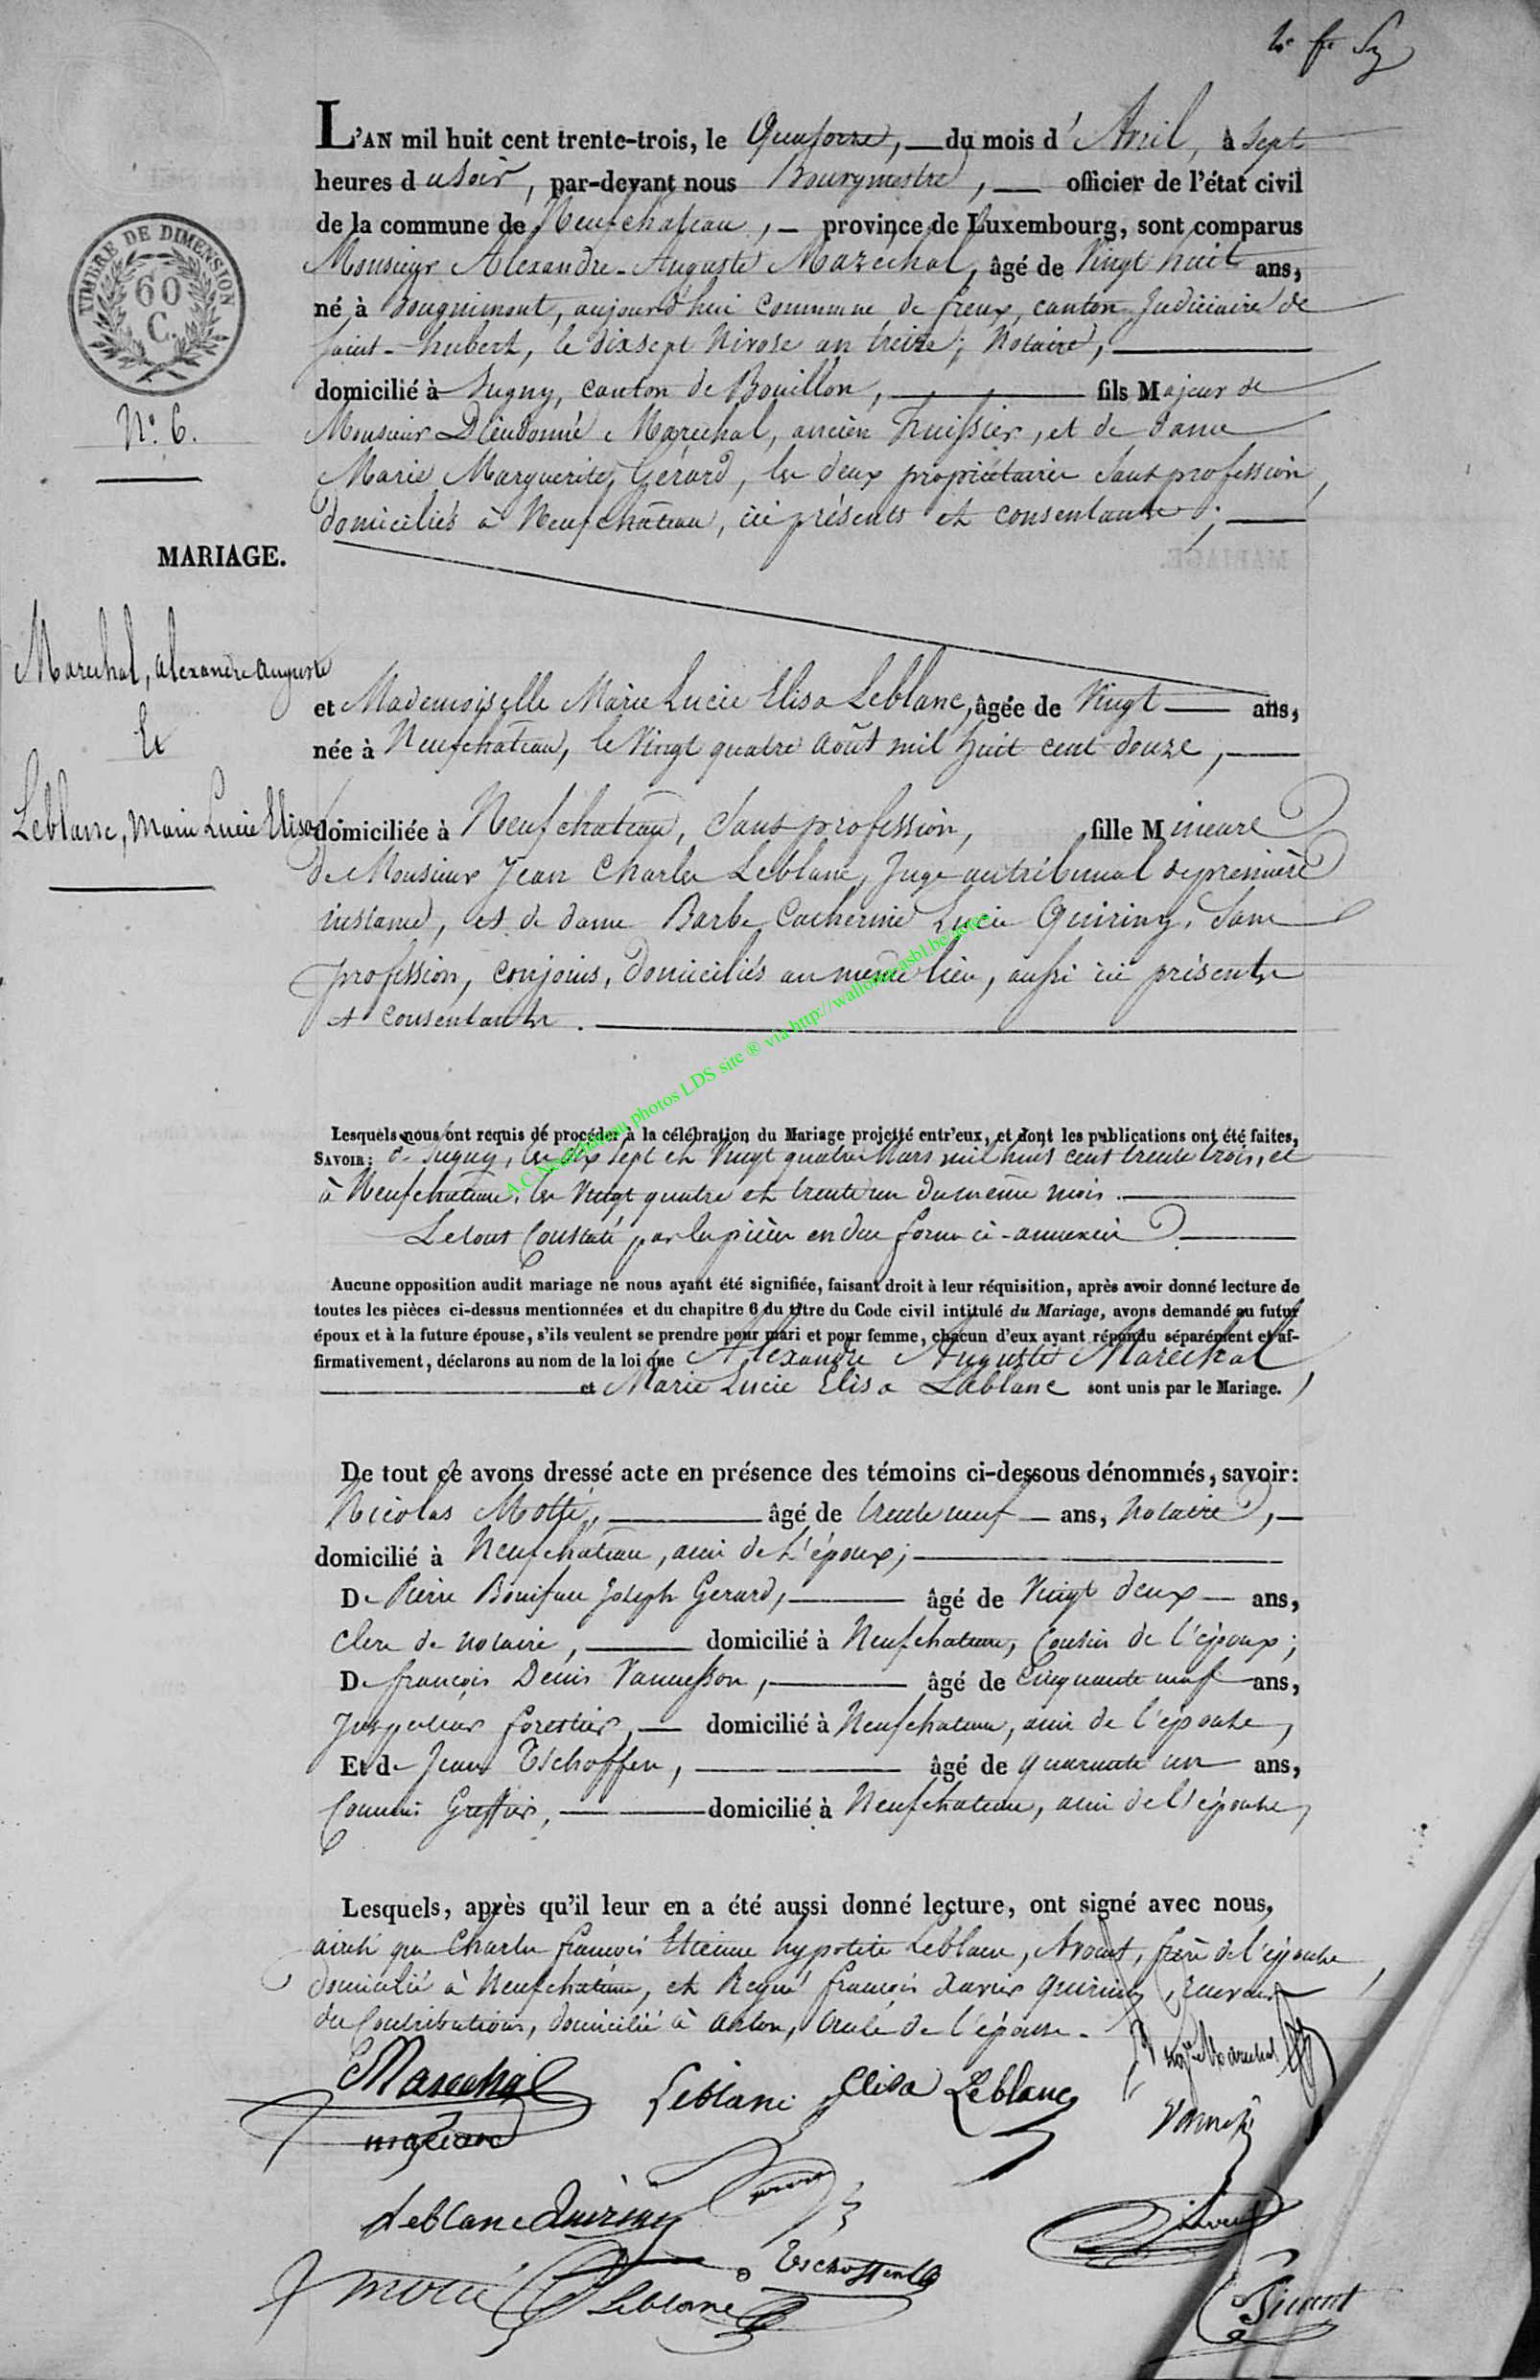 L'AN mil huit cent trente-trois, le Quatorze, du mois d'Avril, à Sept
heures du Soir, par-devant nous Bourgmestre, officier de l'état civil
de la commune de Neufchateau, province de Luxembourg, sont comparus
Monsieur Alexandre-Auguste Marechal, âgé de Vingt huit ans,
né à Bougnimont, aujourd'hui Commune de freux, canton Judiciaire de
Saint-hubert, le dix sept Nivose an treize; Notaire,
domicilié à Sugny, canton de Bouillon, fils Majeur de
Monsieur Dieudonné Marechal, ancien huissier, et de dame
Marie Marguerite Gérard, les deux propriétaires sans profession,
domiciliés à Neufchâteau, ici présents et consentants;
TIMBRE DE DIMENSION
60
C.
N.° 6.
MARIAGE.
Marechal, alexandre auguste
Et
Leblanc, Marie Lucie Elisa
et Mademoiselle Marie Lucie Elisa Leblanc, âgée de Vingt ans,
née à Neufchâteau, le Vingt quatre Août mil huit cent douze,
domiciliée à Neufchateau, sans profession, fille Mineure
de Monsieur Jean Charles Leblanc, Juge au tribunal de première
instance, et de dame Barbe Catherine Lucie Quiriny, sans
profession, conjoins, domiciliés au meme lieu, aussi ici présents
et consentants.
A.C.Neufchâteau photos LDS site ® via http://wallonia-asbl.be
Lesquels nous ont requis de procéder à la célébration du Mariage projetté entr'eux, et dont les publications ont été faites,
SAVOIR: à Sugny, les dix sept et Vingt quatre Mars mil huit cent trente trois, et
à Neufchateau, les Vingt quatre et trente un du même mois.
Le tout Constaté par les pièces en due forme ci-annexées.
Aucune opposition audit mariage ne nous ayant été signifiée, faisant droit à leur réquisition, après avoir donné lecture de
toutes les pièces ci-dessus mentionnées et du chapitre 6 du titre du Code civil intitulé du Mariage, avons demandé au futur
époux et à la future épouse, s'ils veulent se prendre pour mari et pour femme, chacun d'eux ayant répondu séparément et af-
firmativement, déclarons au nom de la loi que Alexandre Auguste Marechal
et Marie Lucie Elisa Leblanc sont unis par le Mariage.
De tout ce avons dressé acte en présence des témoins ci-dessous dénommés, savoir:
Nicolas Motté, âgé de trente neuf ans, Notaire,
domicilié à Neufchateau, ami de L'époux;
De Pierre Boniface Joseph Gerard, âgé de Vingt deux ans,
Clerc de Notaire, domicilié à Neufchateau, Cousin de l'époux;
De françois Denis Vannesson, âgé de Cinquante neuf ans,
Inspecteur forestier, domicilié à Neufchateau, ami de l'épouse,
Et de Jean Tschoffen, âgé de quarante un ans,
Commis Greffier, domicilié à Neufchateau, ami de l'épouse,
Lesquels, après qu'il leur en a été aussi donné lecture, ont signé avec nous,
ainsi que Charles francois Etienne hypolite Leblanc, Avocat, frère de l'épouse
domicilié à Neufchateau, et françois Xavier Quiriny, receveur
des Contributions, domicilié à Arlon, oncle de l'épouse.
Marechal Leblanc Elisa Leblanc Marechal
Leblanc Quiriny
Tschoffen
Motté Leblanc